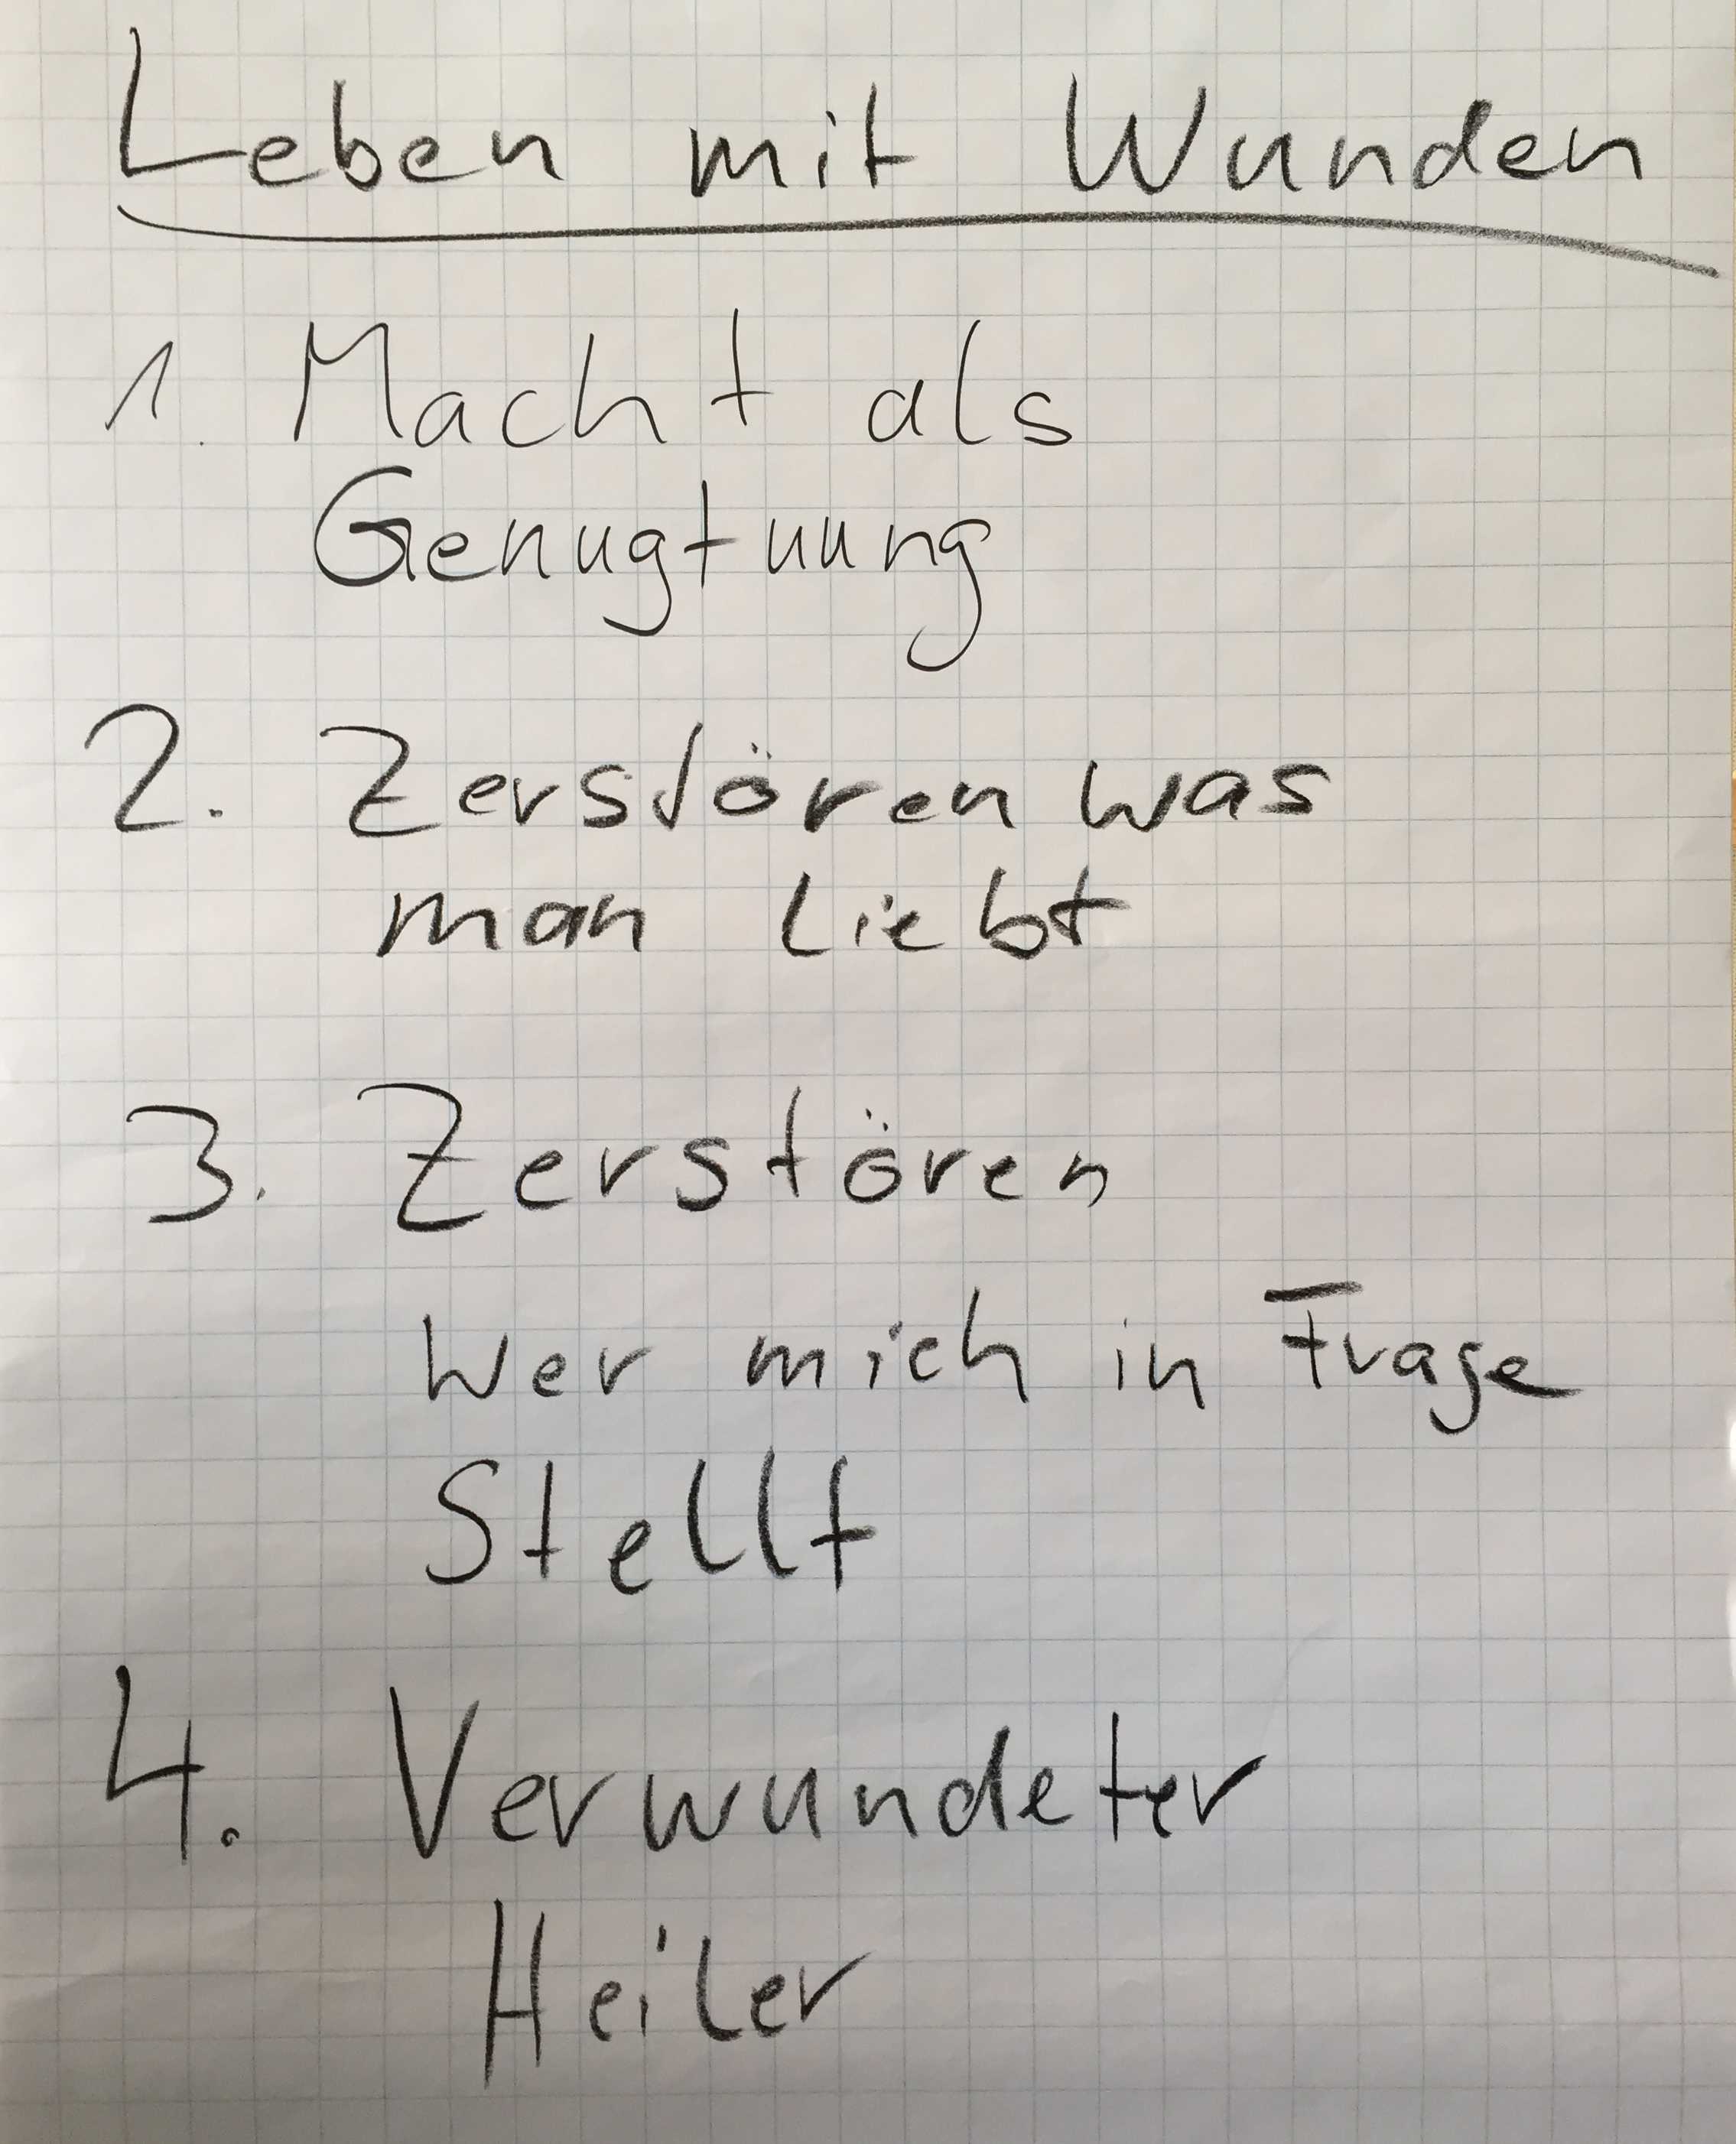 Leben mit Wunden
1. Macht als
Genugtuung
2. Zerstören was
man liebt
3. Zerstören
wer mich in Frage
Stellt
4. Verwundeter
Heiler